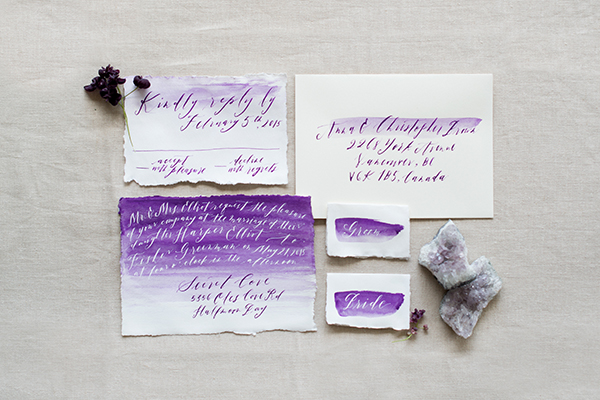 Kindly reply by
February 5th, 2015
accept
with pleasure
decline
with regrets
Anna & Christopher
2268 York Avenue
Vancouver, BC
Canada
Mr & Mrs Elliot request the pleasure
of your company at the marriage of their
daughter Harper Elliot to
on May 23, 2015
at four o'clock in the afternoon
Secret Cove
5356 Oles Cove Rd
Halfmoon Bay
Green
Bride